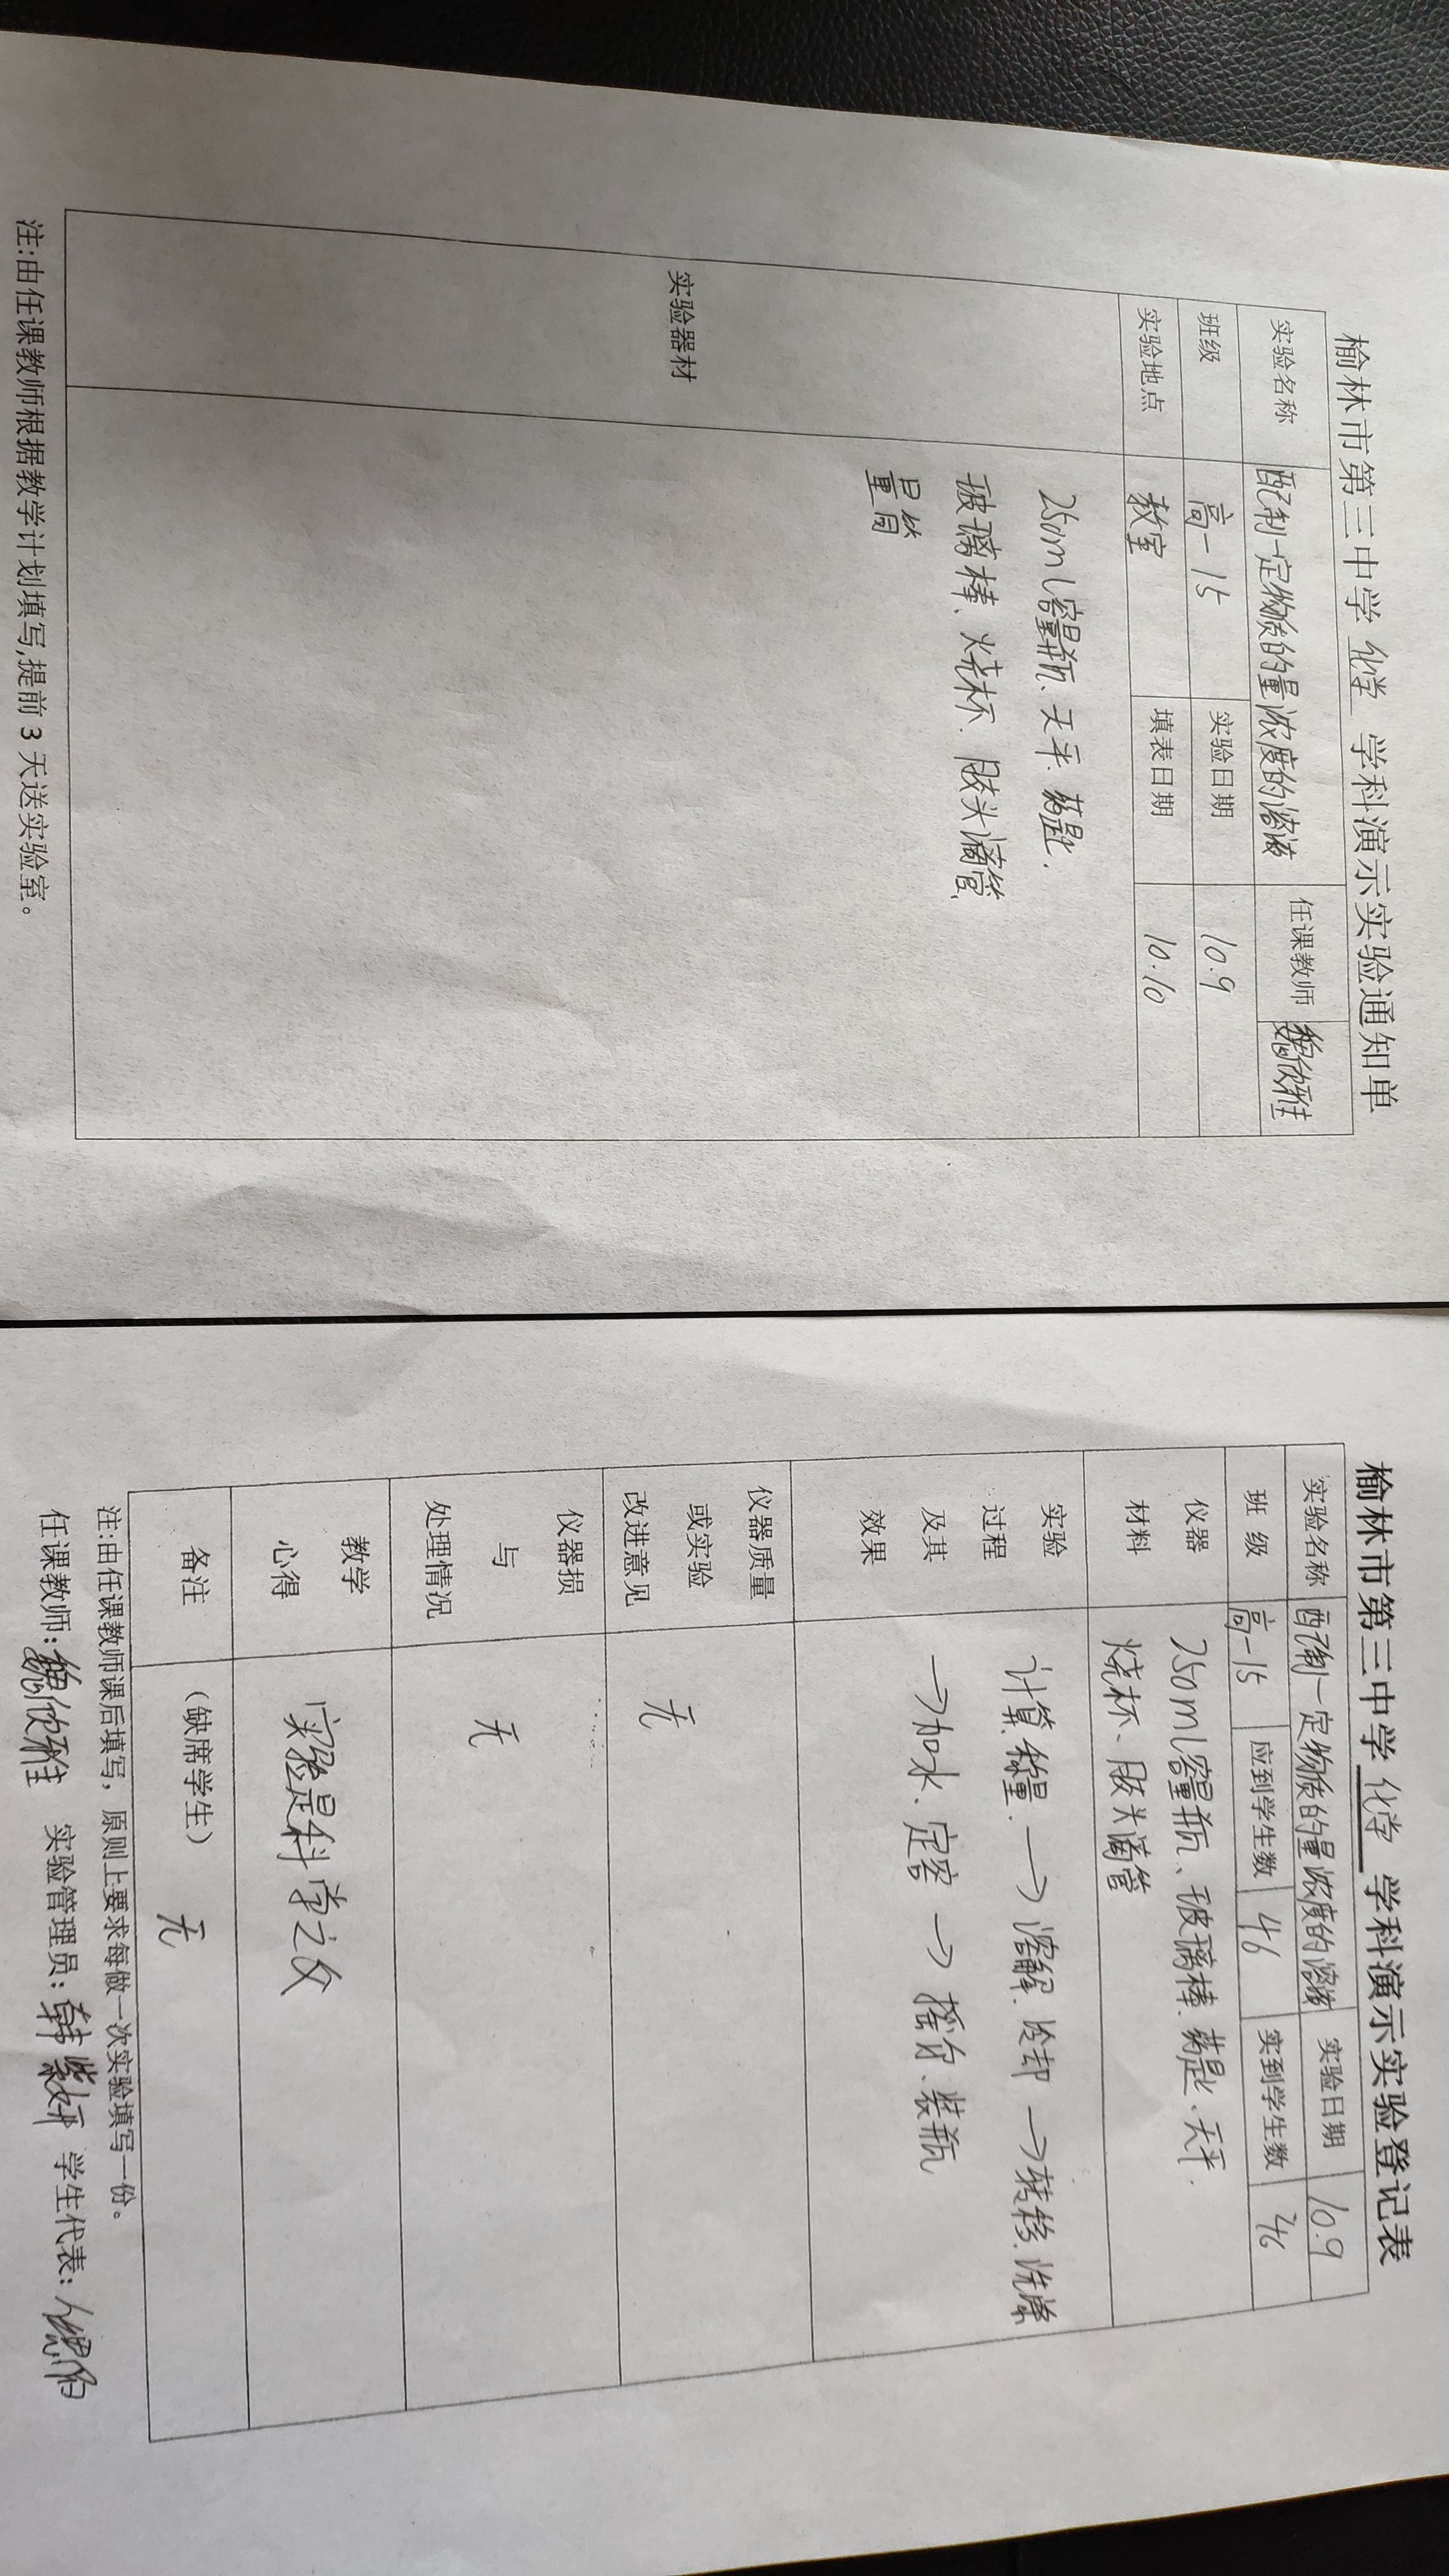 榆林市第三中学 化学 学科演示实验通知单
实验名称 配制一定物质的量浓度的溶液 任课教师 魏欣雅
班级 高一15 实验日期 10.9
实验地点 教室 填表日期 10.10
实验器材
250ml容量瓶、天平、药匙、
玻璃棒、烧杯、胶头滴管、
量筒
注:由任课教师根据教学计划填写,提前3天送实验室。
榆林市第三中学 化学 学科演示实验登记表
实验名称 配制一定物质的量浓度的溶液 实验日期 10.9
班 级 高一15 应到学生数 46 实到学生数 46
仪器
材料
250ml容量瓶、玻璃棒、药匙、天平、
烧杯、胶头滴管
实验
过程
及其
效果
计算、称量、→溶解、冷却→转移、洗涤
→加水、定容→摇匀、装瓶
仪器质量
或实验
改进意见
无
仪器损
与
处理情况
无
教学
心得
实验是科学之父
备注
(缺席学生)
无
注:由任课教师课后填写，原则上要求每做一次实验填写一份。
任课教师:魏欣雅 实验管理员:韩 学生代表: